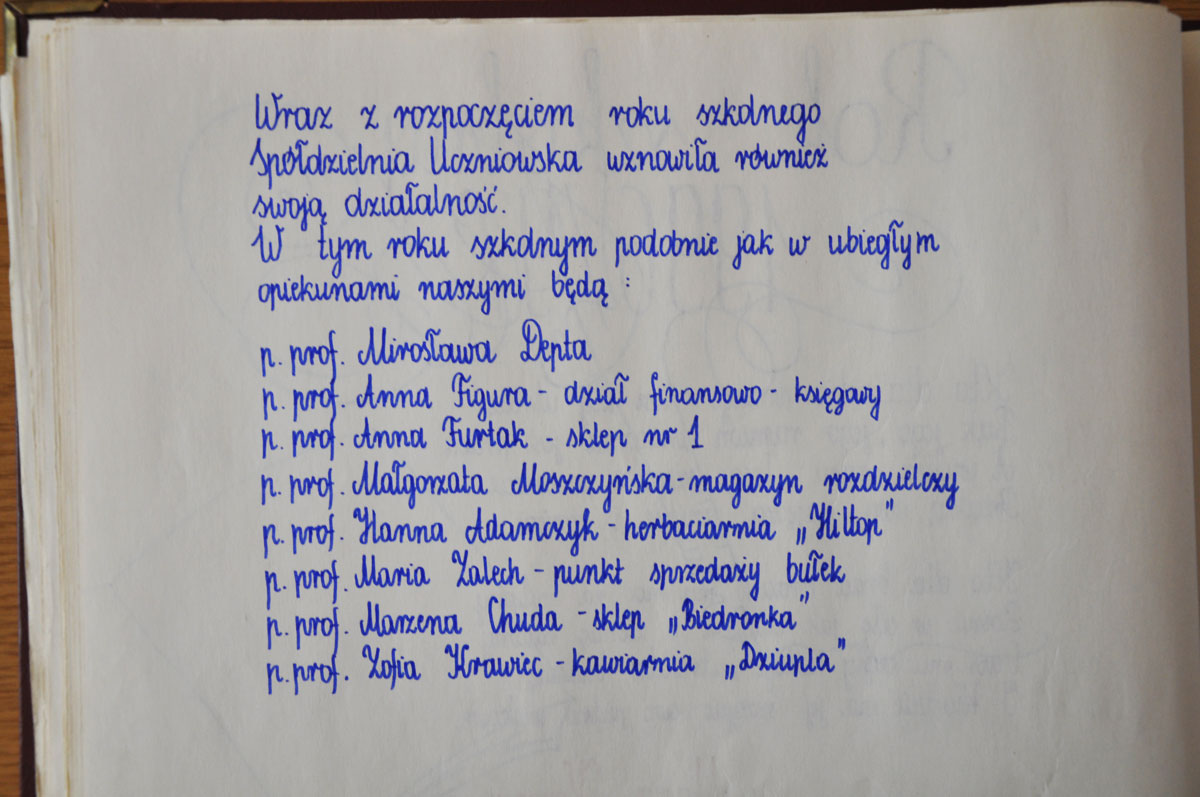 Wraz z rozpoczęciem roku szkolnego
Spółdzielnia Uczniowska wznowiła również
swoją działalność.
W tym roku szkolnym podobnie jak w ubiegłym
opiekunami naszymi będą :
p. prof. Mirosława Depta
p. prof. Anna Figura - dział finansowo - księgowy
p. prof. Anna Furtak - sklep nr 1
p. prof. Małgorzata Moszczyńska - magazyn rozdzielczy
p. prof. Hanna Adamczyk - herbaciarnia „Hilton”
p. prof. Maria Zalech - punkt sprzedaży bułek
p. prof. Marzena Chuda - sklep „Biedronka”
p. prof. Zofia Krawiec - kawiarnia „Dziupla”